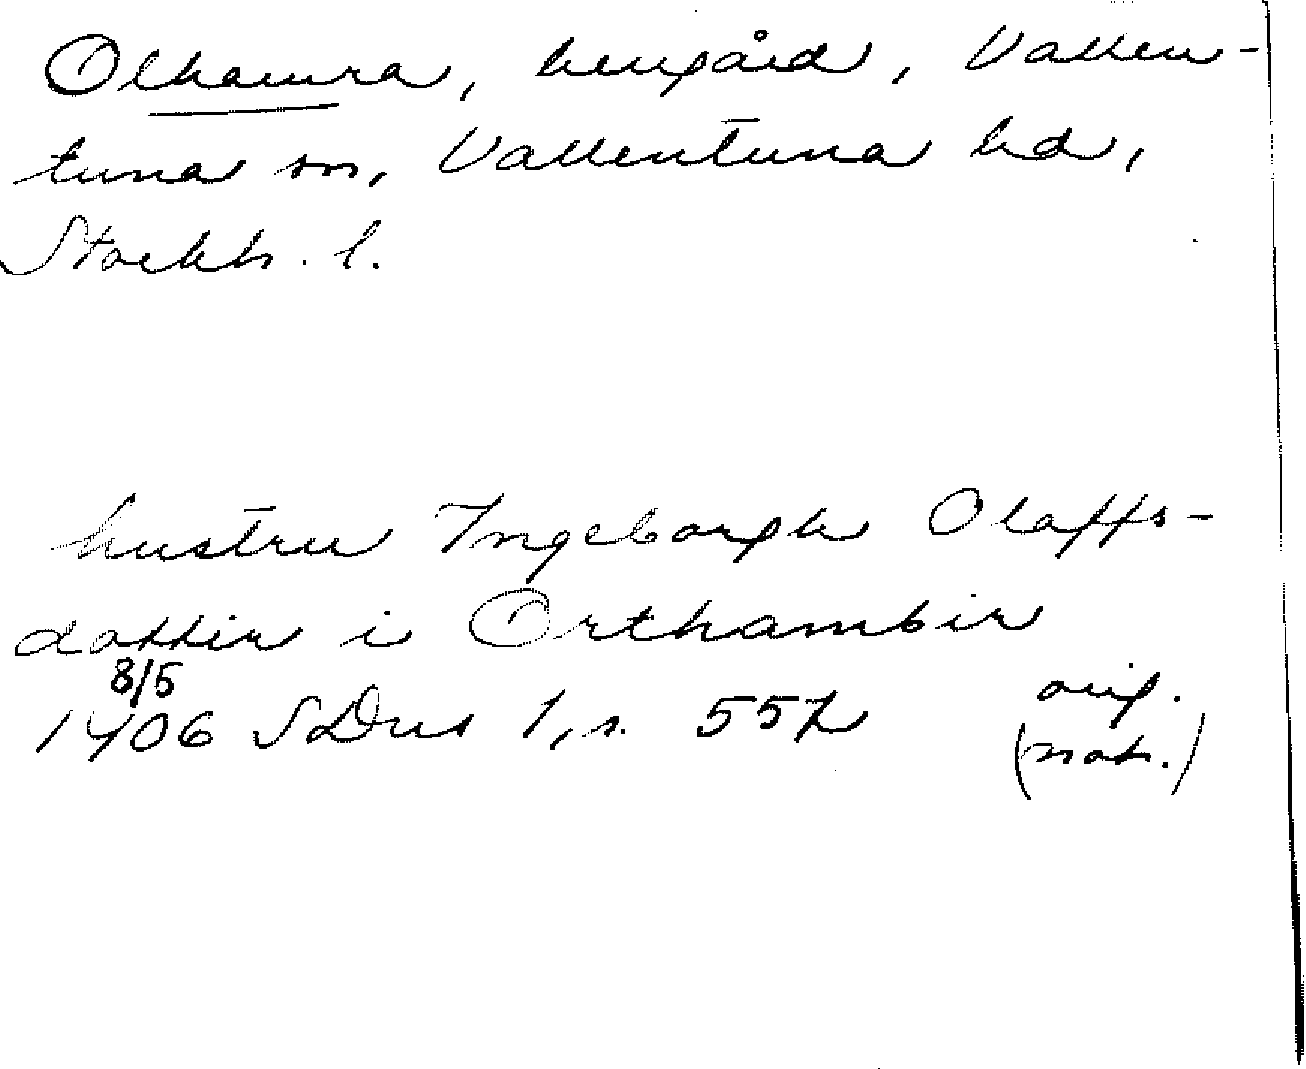 Olhamra, herrgård, Vallen-
tuna sn, Vallentuna hd,
Stockh. l.
hustru Ingeborgh Olaffs-
dottir i Orthambir
8/5
1406 SDns 1, s. 557 orig.
(noh.)